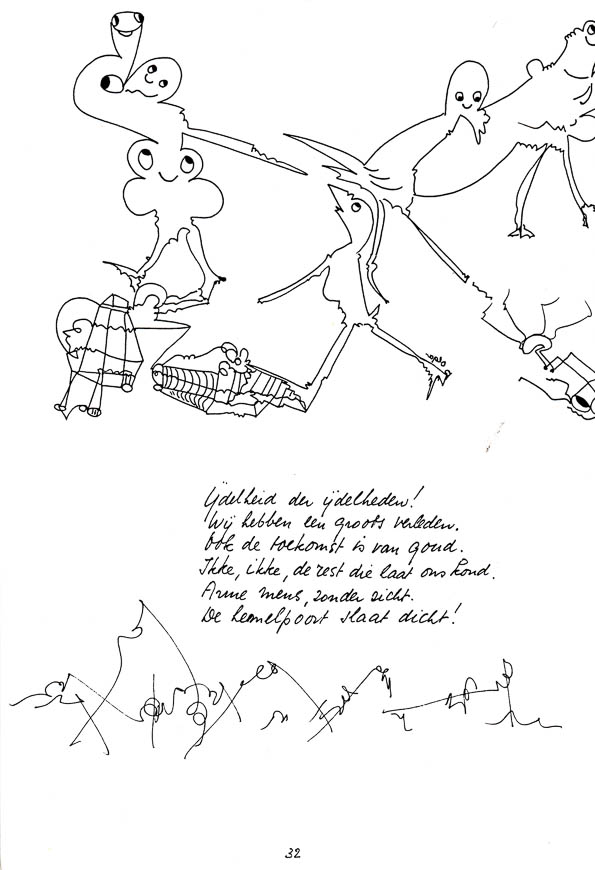 Ijdelheid der ijdelheden!
Wij hebben een groots verleden.
Ook de toekomst is van goud.
Ikke, ikke, de rest die laat ons koud.
Arme mens, zonder zicht.
De hemelpoort slaat dicht!
32